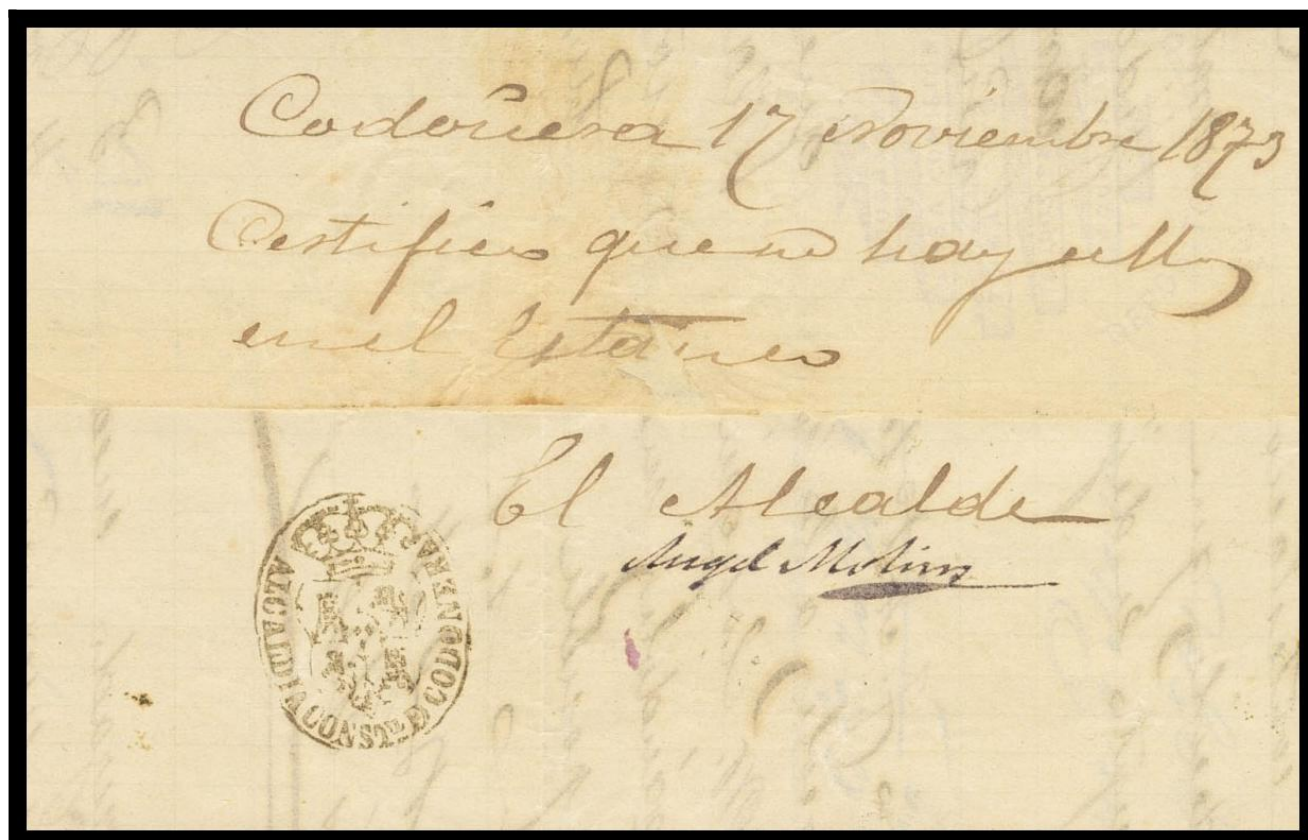 Codoñera 17 Noviembre 1873
Certifico que no hay sellos
en el Estanco
El Alcalde
Angel Molins
ALCALDIA CODOÑERA